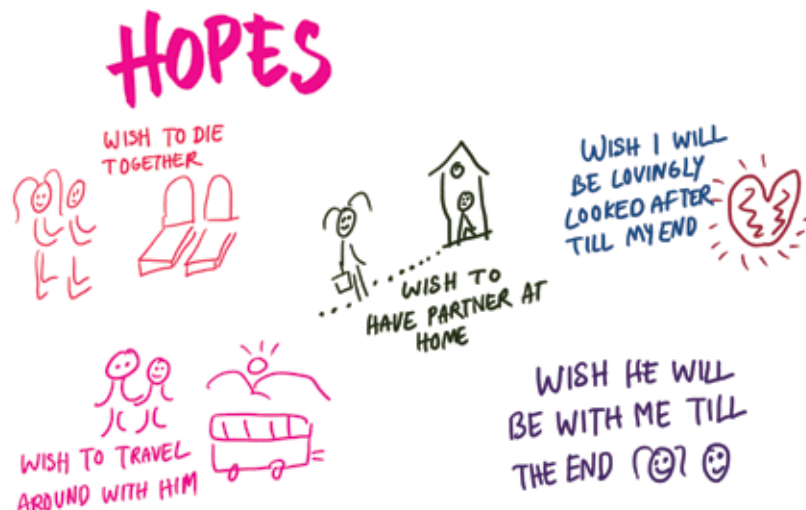 HOPES
WISH TO DIE
TOGETHER
WISH TO
HAVE PARTNER AT
HOME
WISH I WILL
BE LOVINGLY
LOOKED AFTER
TILL MY END
WISH TO TRAVEL
AROUND WITH HIM
WISH HE WILL
BE WITH ME TILL
THE END